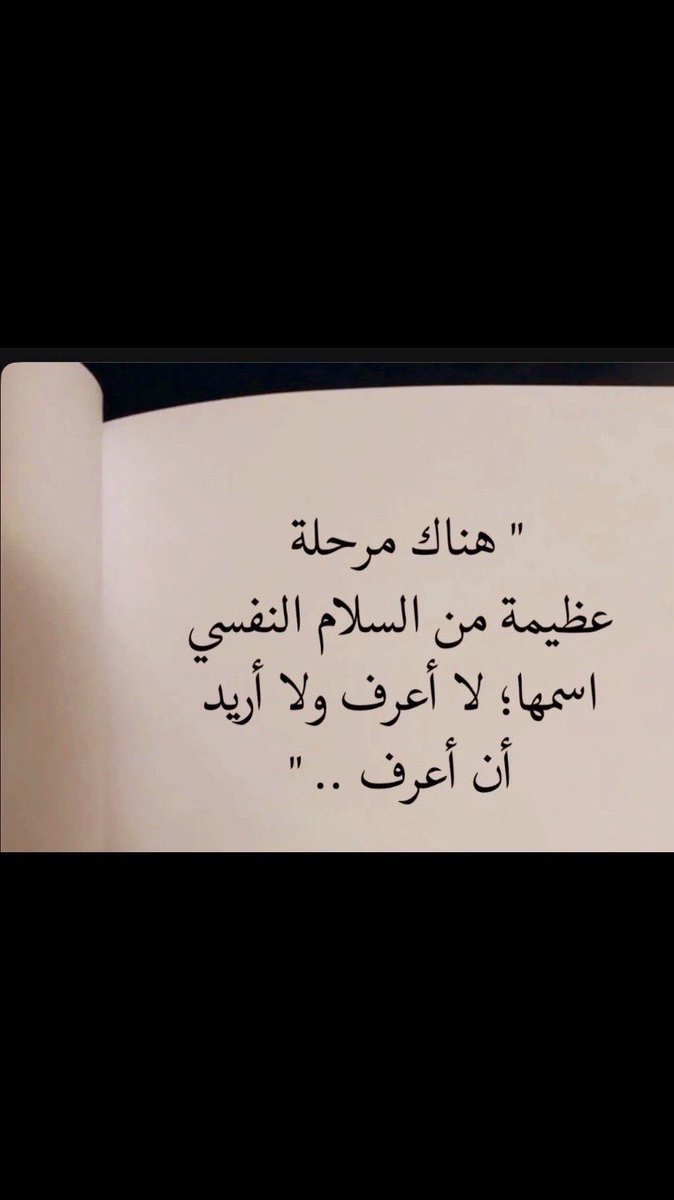 " هناك مرحلة
عظيمة من السلام النفسي
اسمها؛ لا أعرف ولا أريد
أن أعرف .. "